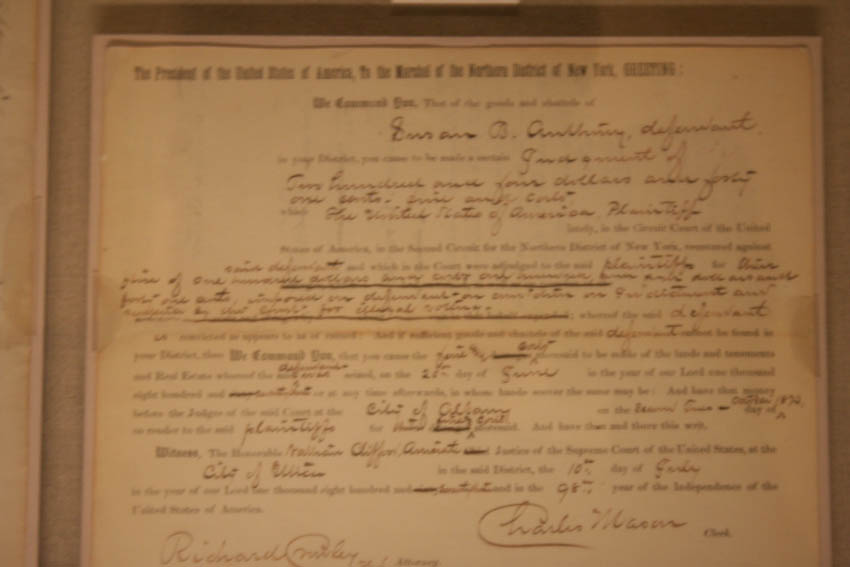 The President of the United States of America, To the Marshal of the Northern District of New York, GREETING:
We Command You, That of the goods and chattels of
Susan B. Anthony, defendant.
in your District, you cause to be made a certain Judgment of
Two hundred and four dollars and forty
one cents - fine and costs
which The United States of America Plaintiff
lately, in the Circuit Court of the United
States of America, in the Second Circuit for the Northern District of New York, recovered against
said defendant and which in the Court were adjudged to the said plaintiffs for their
fine of one hundred dollars and costs one hundred and four dollars and
forty one cents, imposed on defendant on conviction on Indictment and
by the Court for illegal voting. whereof the said defendant
is convicted as appears to us of record: And if sufficient goods and chattels of the said defendant cannot be found in
your District, then We Command You, that you cause the fine costs aforesaid to be made of the lands and tenements
and Real Estate whereof the said defendant was seized, on the 20th day of June in the year of our Lord one thousand
eight hundred and or at any time afterwards, in whose hands soever the same may be: And have that money
before the Judges of the said Court at the City of Albany on the day of October 1874
to render to the said plaintiffs for their fine & costs aforesaid. And have then and there this writ.
Witness, The Honorable Nathan Clifford, Justice of the Supreme Court of the United States, at the
City of Utica in the said District, the 10th day of July
in the year of our Lord one thousand eight hundred and and in the 98th year of the Independence of the
United States of America.
Charles Mason Clerk.
Richard Crowley Attorney.